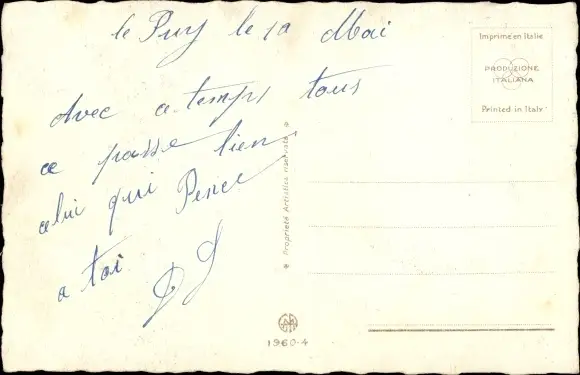 le Puy le 10 Mai
Avec a temps tous
ce passe bien
celui qui Pence
a toi
Imprimé en Italie
PRODUZIONE
ITALIANA
Printed in Italy
* Proprietà Artistica riservata *
1960-4